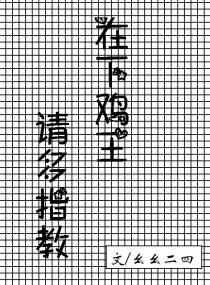 在下鸡王
请多指教
文/幺幺二四